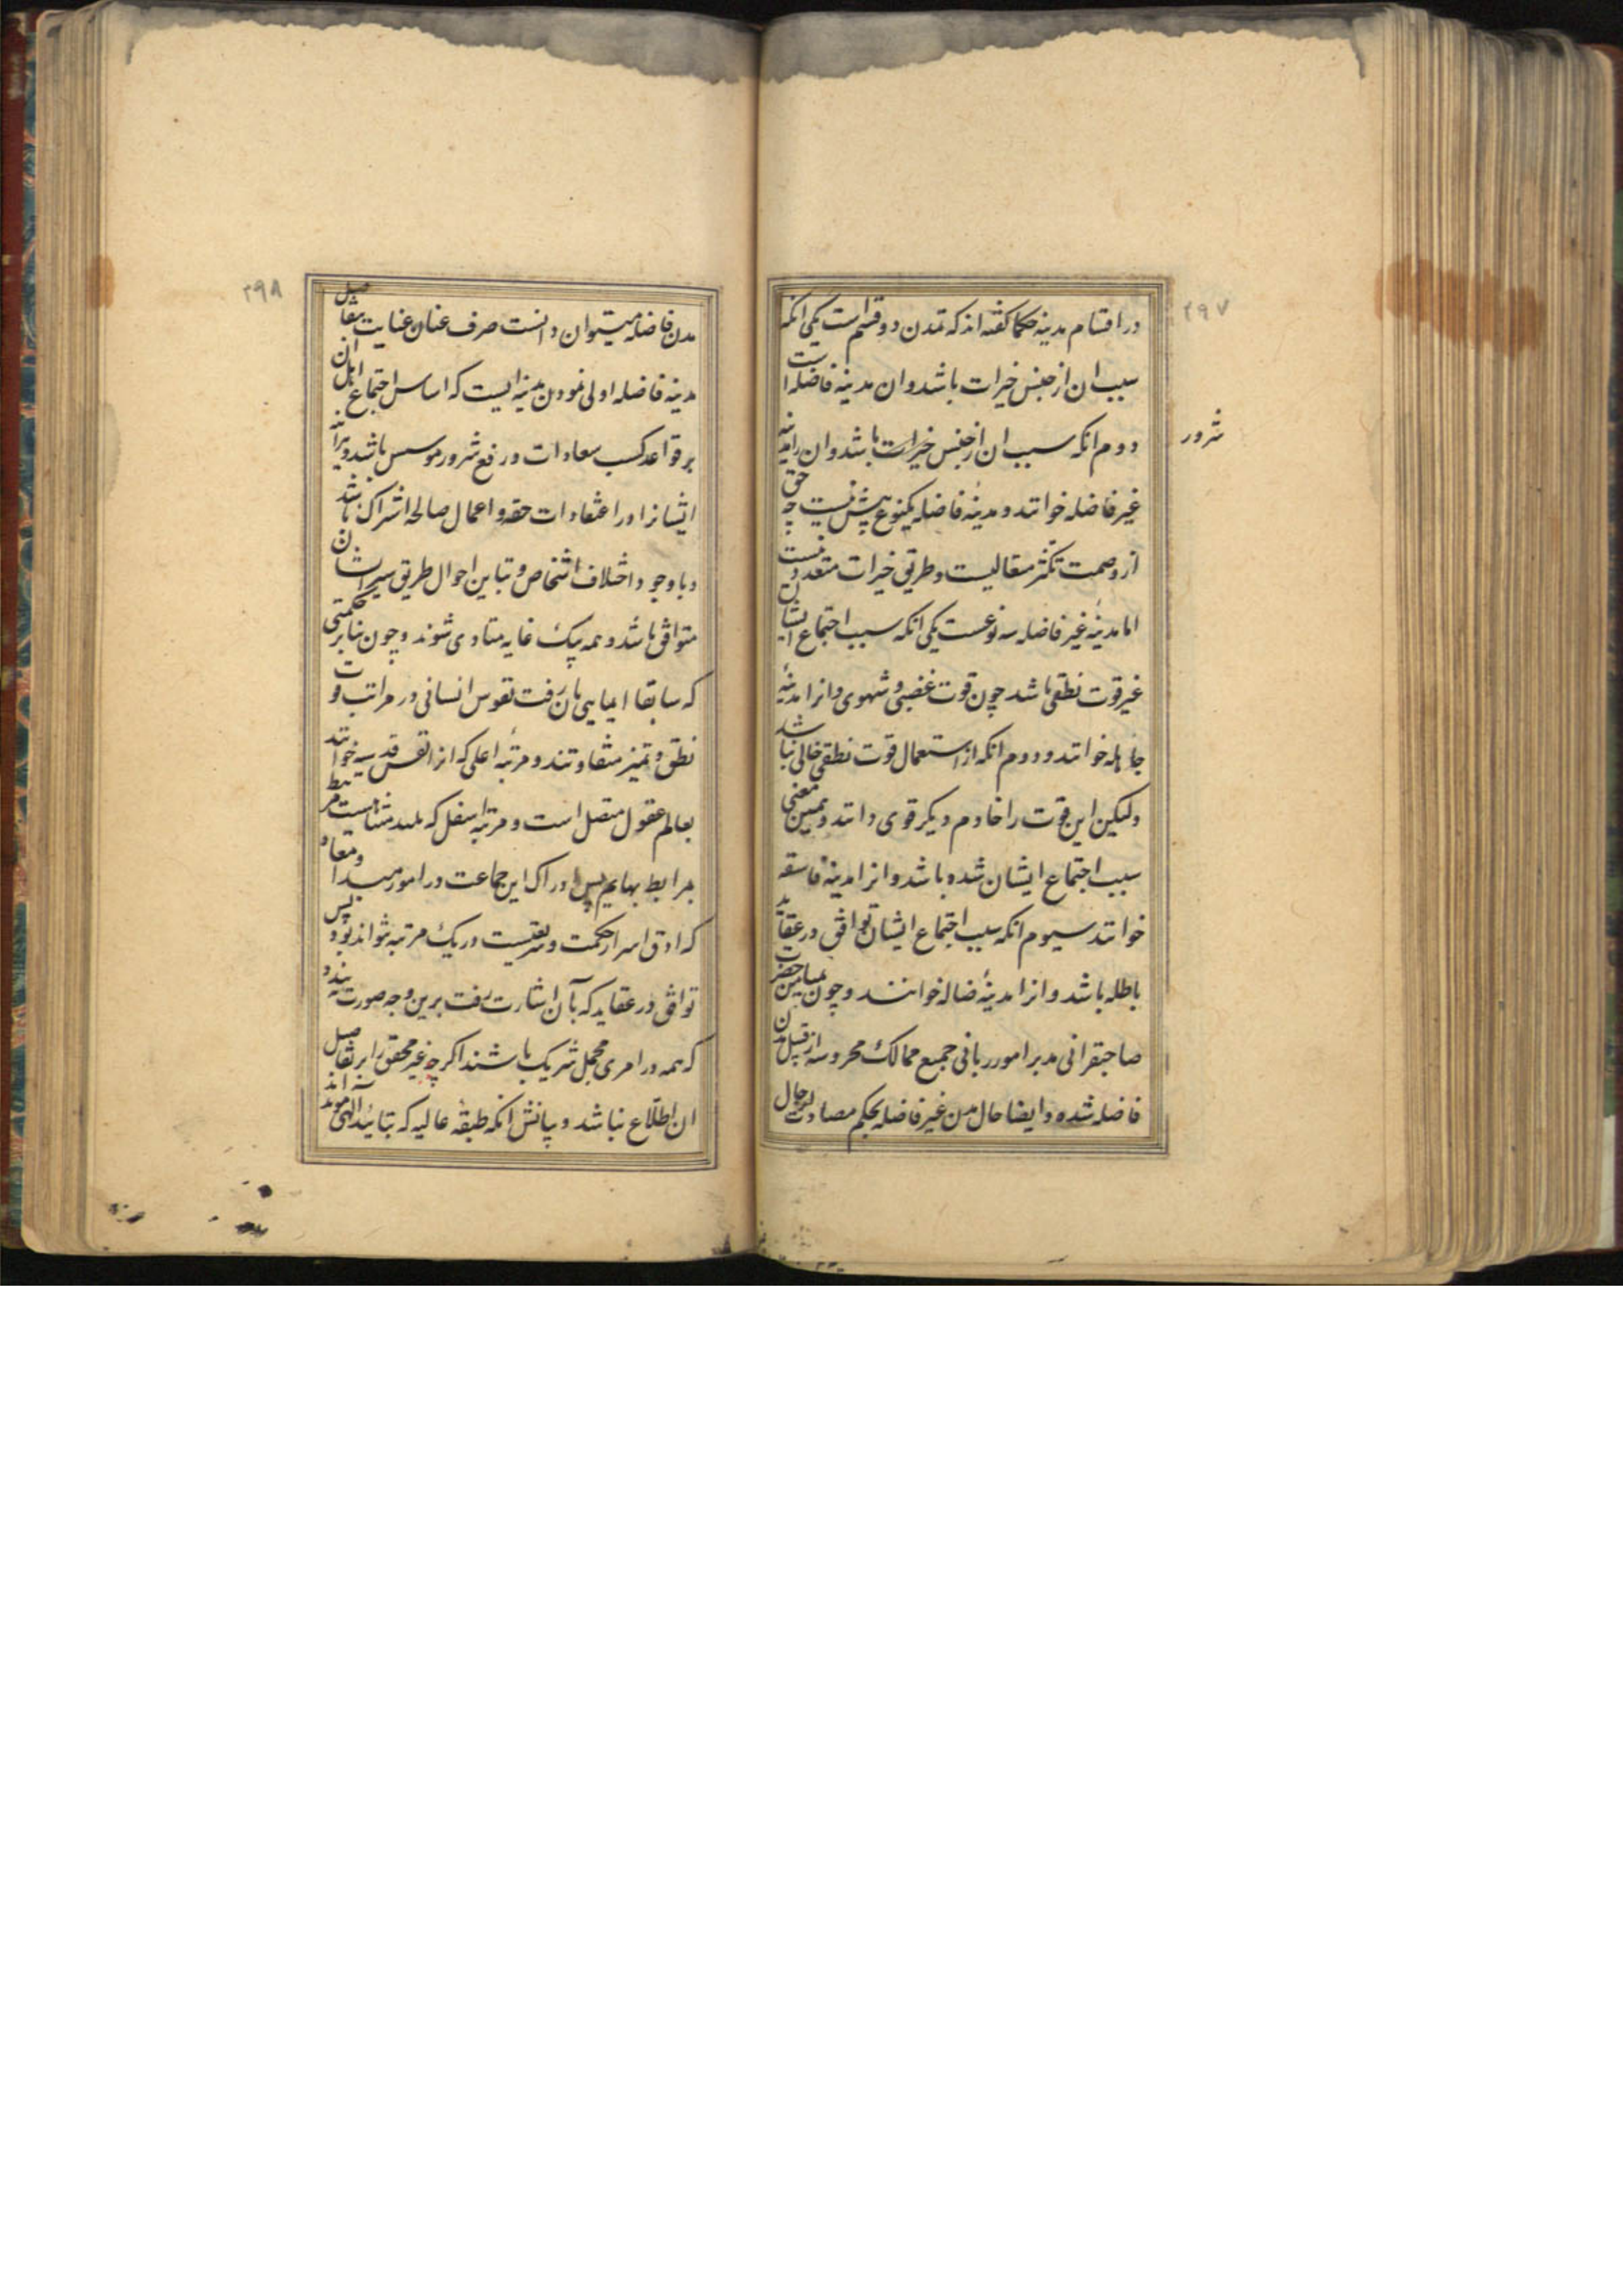 ۲۹۷
در اقسام مدینه حکما گفته اند که تمدن دو قسم است یکی انکه
سبب ان از جنس خیرات باشد و ان مدینه فاضله است
دوم انکه سبب ان از جنس خیرات باشد و ان را مدینه
شرور
غیر فاضله خوانند و مدینهٔ فاضله یکنوع پیش نیست چه حق
از وصمت تکثر متعالیست و طریق خیرات متعدد نیست
اما مدینهٔ غیر فاضله سه نوعست یکی انکه سبب اجتماع ایشان
غیر قوت نطقی باشد چون قوت غضبی و شهوی و انرا مدینهٔ
جاهله خوانند و دوم انکه از استعمال قوت نطقی خالی نباشد
ولیکن این قوت را خادم دیکر قوی دانند و همین معنی
سبب اجتماع ایشان شده باشد و انرا مدینهٔ فاسقه
خوانند سیوم انکه سبب اجتماع ایشان توافق در عقاید
باطله باشد و انرا مدینهٔ ضاله خوانند و چون بمیامین حضرت
صاحبقرانی مدبر امور ربانی جمیع ممالک محروسه از قبیل مدن
فاضله شده و ایضا حال مدن غیر فاضله بحکم مصادت از حال
۲۹۸
مدن فاضله میتوان دانست صرف عنان عنایت بتفاصیل
مدینه فاضله اولی نمودن مدینه ایست که اساس اجتماع اهل ان
بر قواعد کسب سعادات و رفع شرور موسس باشد و هراینه
ایشانرا در اعتقادات حقه و اعمال صالحه اشتراک باشد
و با وجود اختلاف اشخاص و تباین احوال طریق سیر ایشان
متوافق باشد و همه بیک غایه متادی شوند و چون بنابر حکمتی
که سابقا ایمایی بان رفت نفوس انسانی در مراتب قوت
نطق و تمیز متفاوتند و مرتبهٔ اعلی که انرا نفس قدسیه خوانند
بعالم عقول متصل است و مرتبهٔ اسفل که مرتبط
برابط بهایم پس ادراک این جماعت در امور مبدا و معاد
که ادق اسرار حکمت و شریعتست در یک مرتبه نتواند بود پس
توافق در عقاید که بآن اشارت رفت برین وجه صورت بندد
که همه در امری مجمل شریک باشند اکرچه غیر محقق را بر تفاصیل
ان اطلاع نباشد و بیانش انکه طبقهٔ عالیه که بتائید الهی